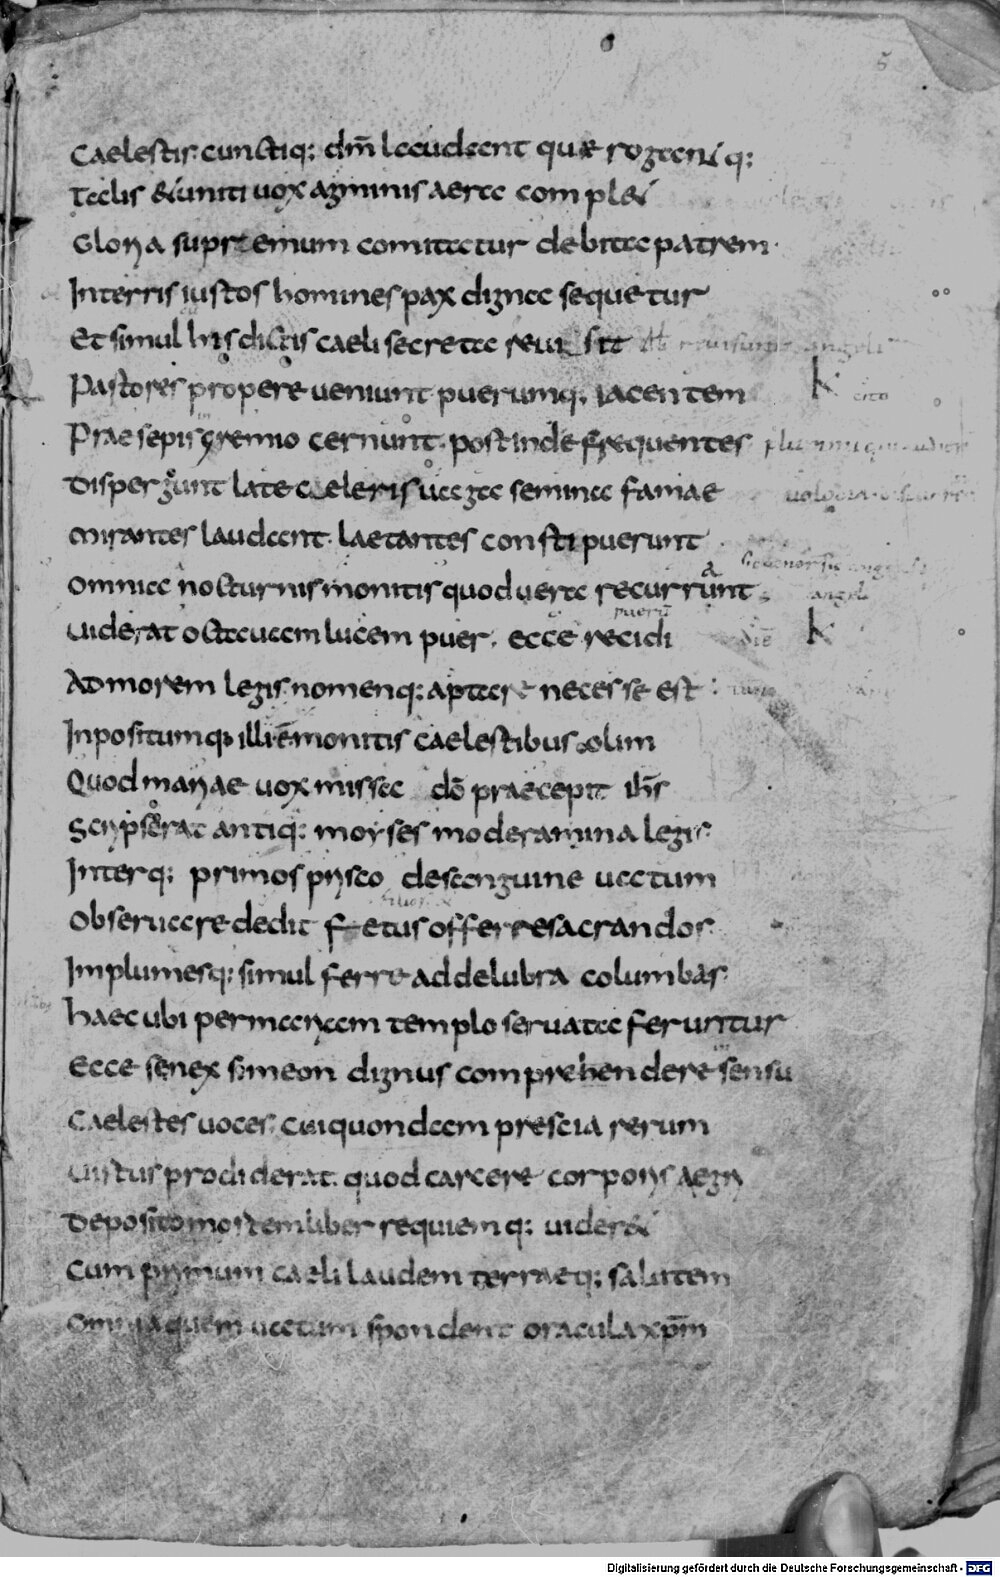 5
Caelestis cunctiq; dm̄ laudant quae rogtaniq;
Talis & iuniti uox agminis aera compl&
Gloria supraemum comitatur debita patrem
Interris iustos homines pax digna sequetur
Et simul his dictis caeli secreta reui sit
Pastores propere ueniunt puerumq; iacentem
Praesepis gremio cernunt. post inde frequentes
Dispergunt late celeris uaga semina famae
Mirantes laudant. laetantes constipuerunt
Omnia nocturnis monitis quod uera recurrunt
Uiderat octauam lucem puer. ecce recidi
puerū
diē
Ad morem legis nomenq; aptare necesse est
Inpositumq; illi ē monitis caelestibus olim
Quod mariae uox missa dō praecepit ih̄s
Scripserat antiq; moyses moderamina legis
Interq; primos prisco desanguine uatum
Obseruare dedit fetus offerre sacrandos
Implumesq; simul ferre ad delubra columbas
haec ubi permariam templo seruata feruntur
Ecce senex simeon dignus comprehendere sensu
Caelestes uoces. cui quondam prescia rerum
Uistus prodiderat. quod carcere corporis aegri
Deposito mortem liber requiemq; uider&
Cum primum caeli laudem terraeq; salutem
Omnia quem uatum spondent oracula xp̄m
Digitalisierung gefördert durch die Deutsche Forschungsgemeinschaft - DFG